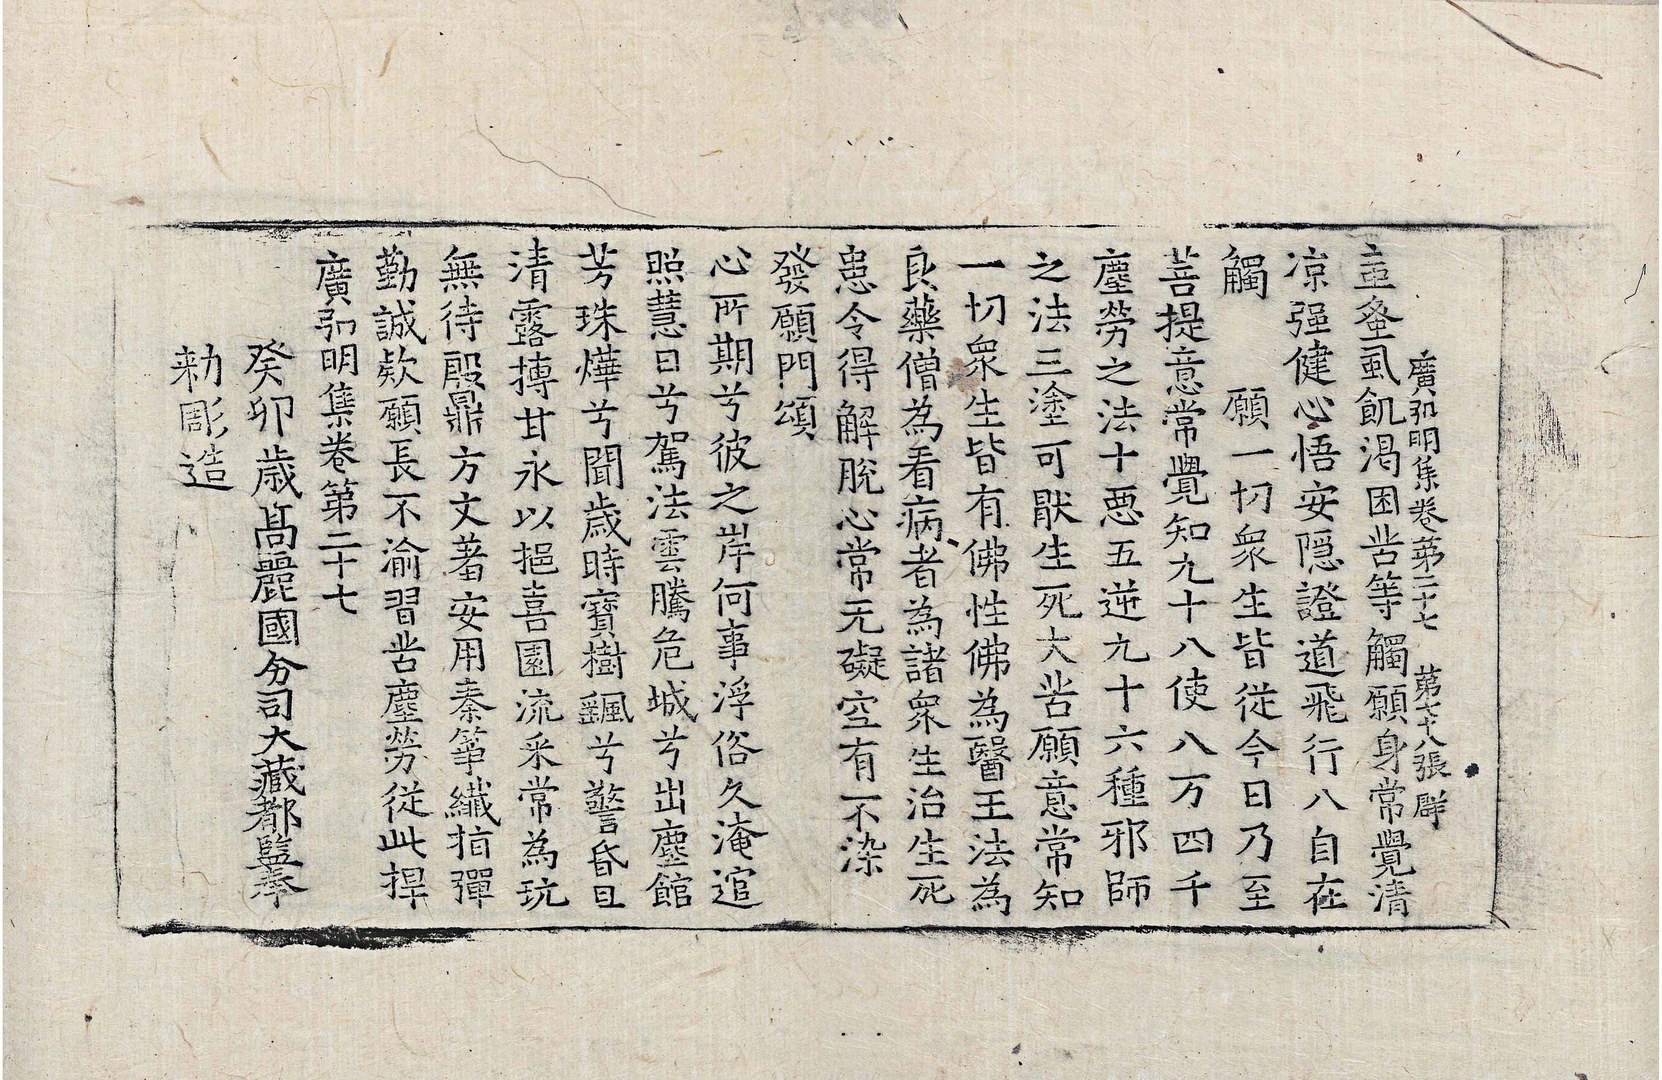 廣弘明集卷第二十七　第七十八張　群
䖟蚤虱飢渴困苦等觸願身常覺清
涼强健心悟安隱證道飛行八自在
觸　　願一切衆生皆從今日乃至
菩提意常覺知九十八使八万四千
塵勞之法十惡五逆九十六種邪師
之法三塗可猒生死大苦願意常知
一切衆生皆有佛性佛為醫王法為
良藥僧為看病者為諸衆生治生死
患令得解脫心常无礙空有不染
發願門頌
心所期兮彼之岸何事浮俗久淹逭
照慧日兮駕法雲騰危城兮出塵館
芳珠燁兮聞歲時寶樹飄兮警昏旦
清露摶甘永以挹喜園流采常為玩
無待殷鼎方文蕃安用秦箏纎指彈
勤誠欵願長不渝習苦塵勞從此捍
廣弘明集卷第二十七
癸卯歲高麗國分司大藏都監奉
勅彫造